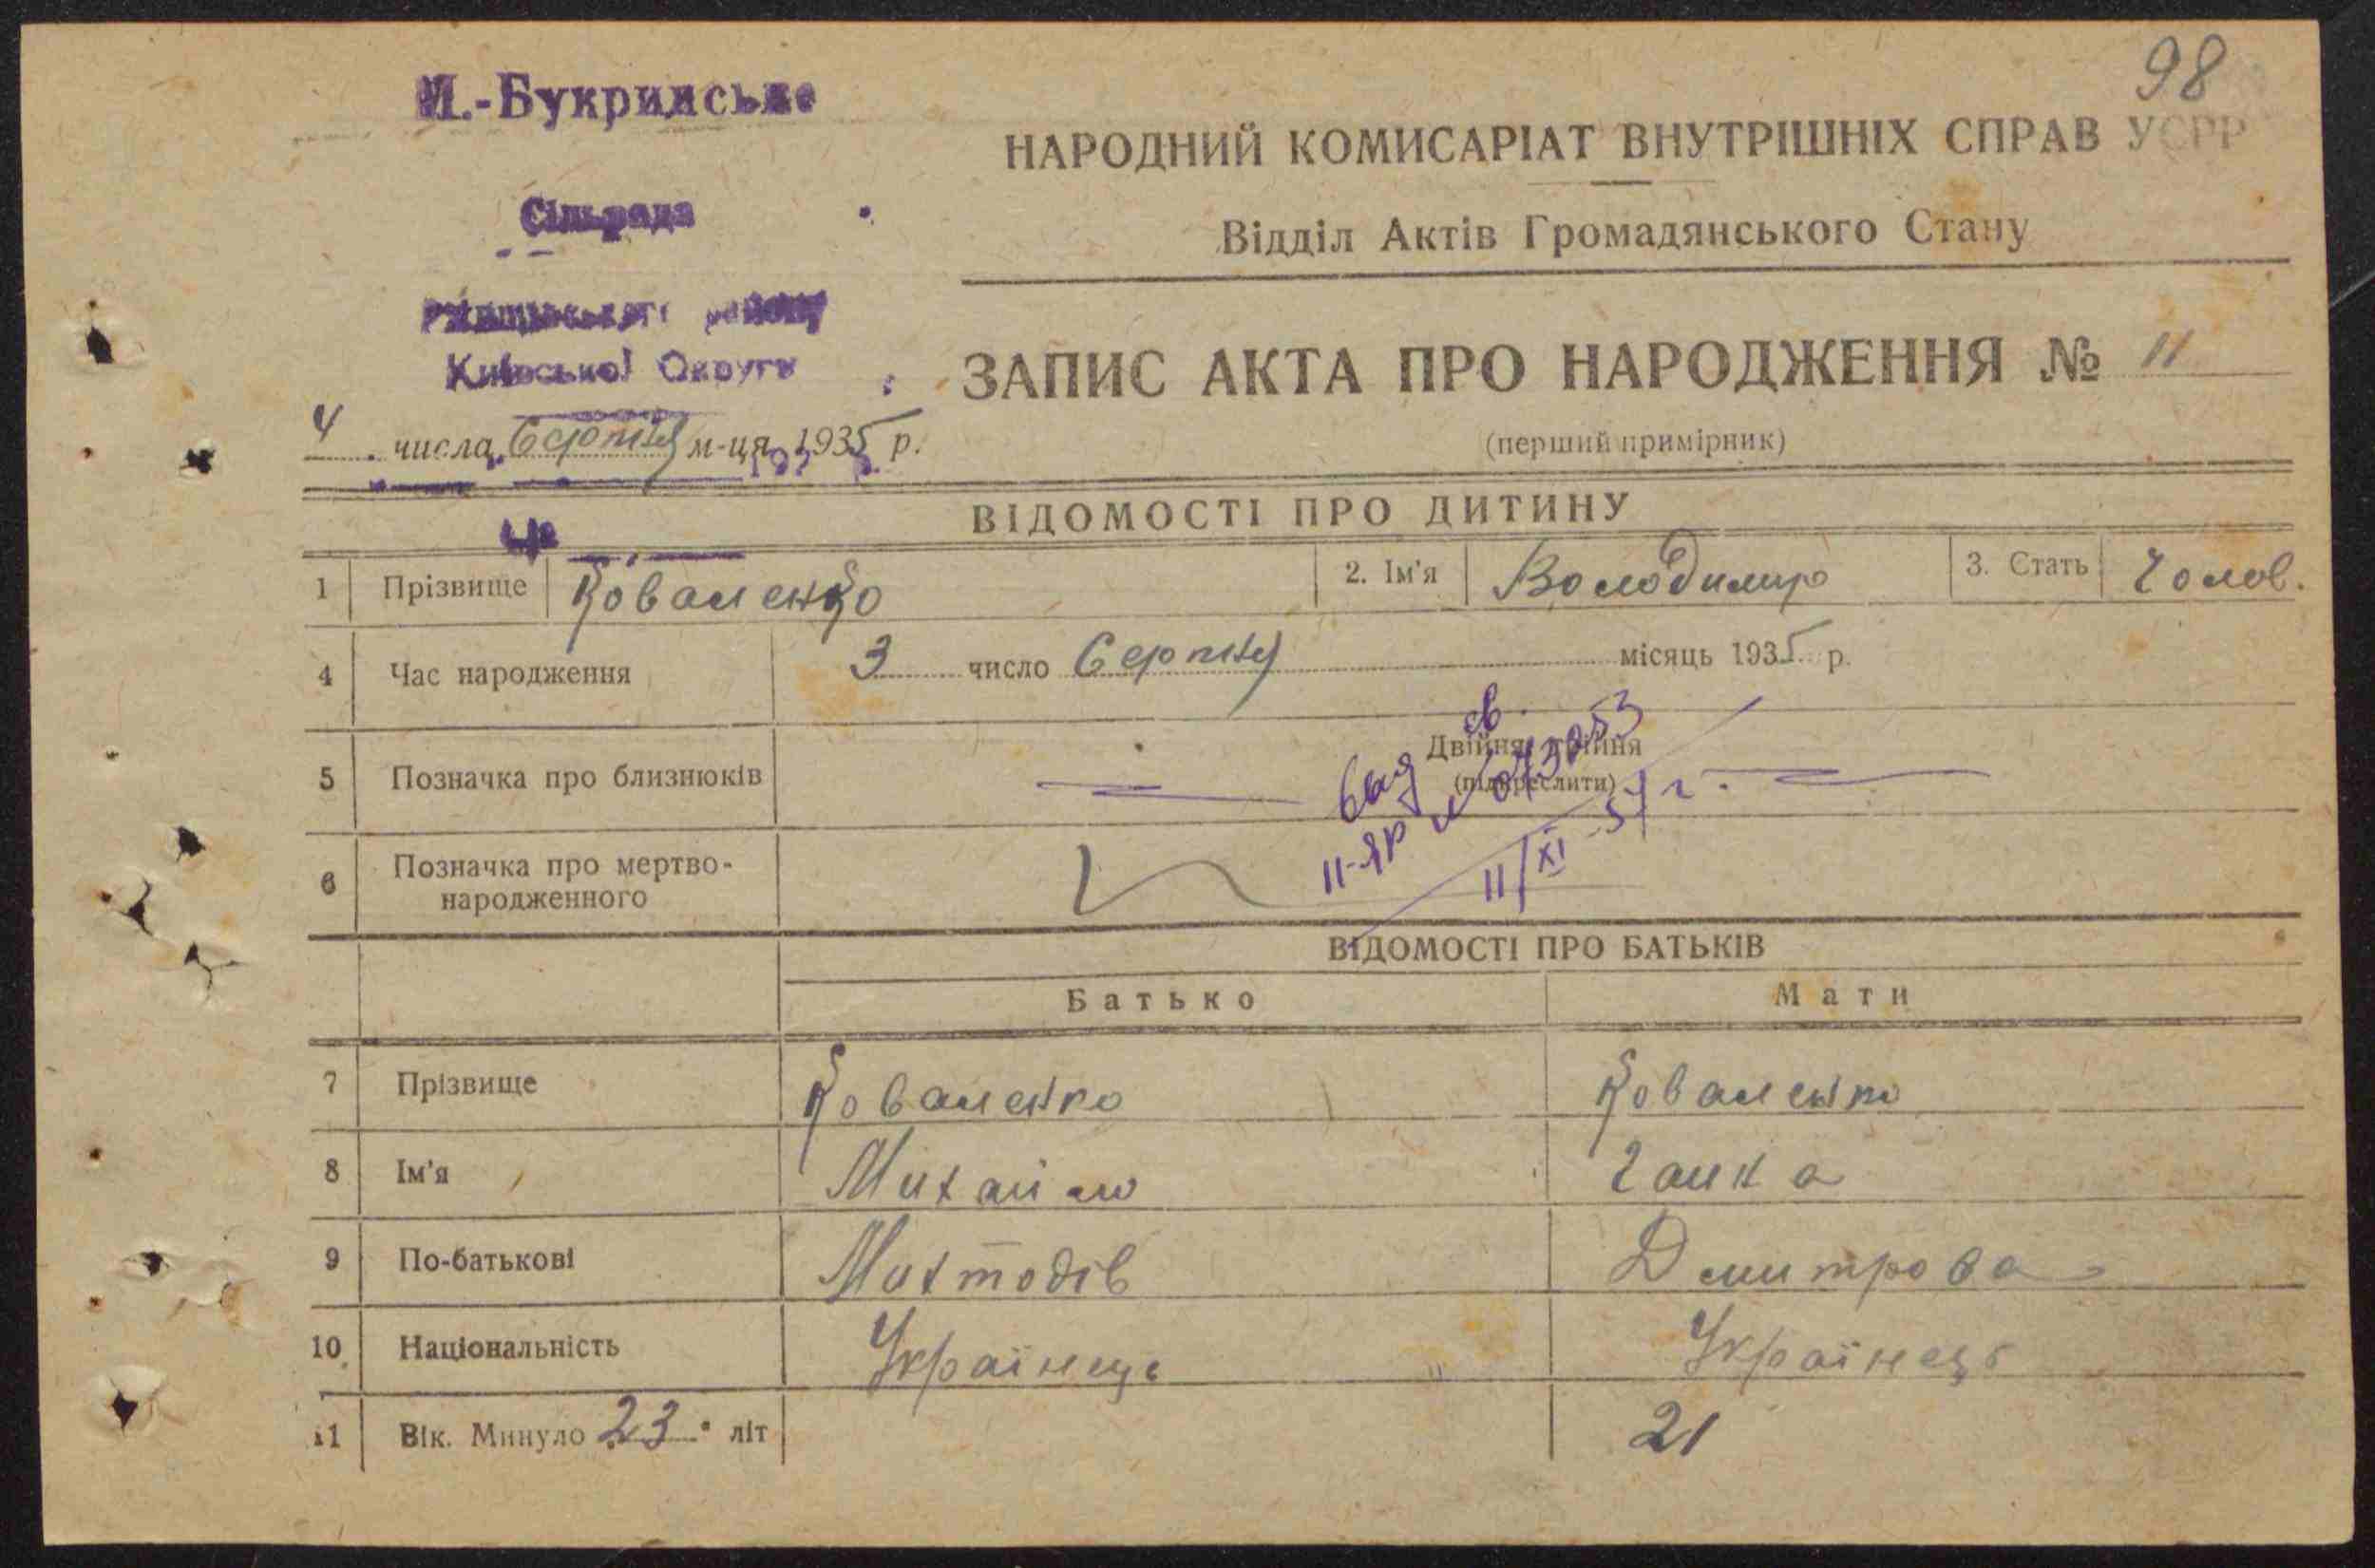 98
М.-Букринська
Сільрада
Ржищівського району
Київської Округи
4 числа Серпня м-ця 1935 р.
НАРОДНИЙ КОМИСАРІАТ ВНУТРІШНІХ СПРАВ УСРР
Відділ Актів Громадянського Стану
ЗАПИС АКТА ПРО НАРОДЖЕННЯ № 11
(перший примірник)
ВІДОМОСТІ ПРО ДИТИНУ
1 Прізвище Коваленко 2. Ім'я Володимир 3. Стать Чолов.
4 Час народження 3 число Серпня місяць 1935 р.
5 Позначка про близнюків Двійня, трійня
(підкреслити)
св.
II-ЯР № 073253
11/XI-51 г.
6 Позначка про мертво-
народженного
ВІДОМОСТІ ПРО БАТЬКІВ
Батько Мати
7 Прізвище Коваленко Коваленко
8 Ім'я Михайло Ганка
9 По-батькові Махтодів Дмитрова
10 Національність Українець Українець
11 Вік. Минуло 23 літ 21